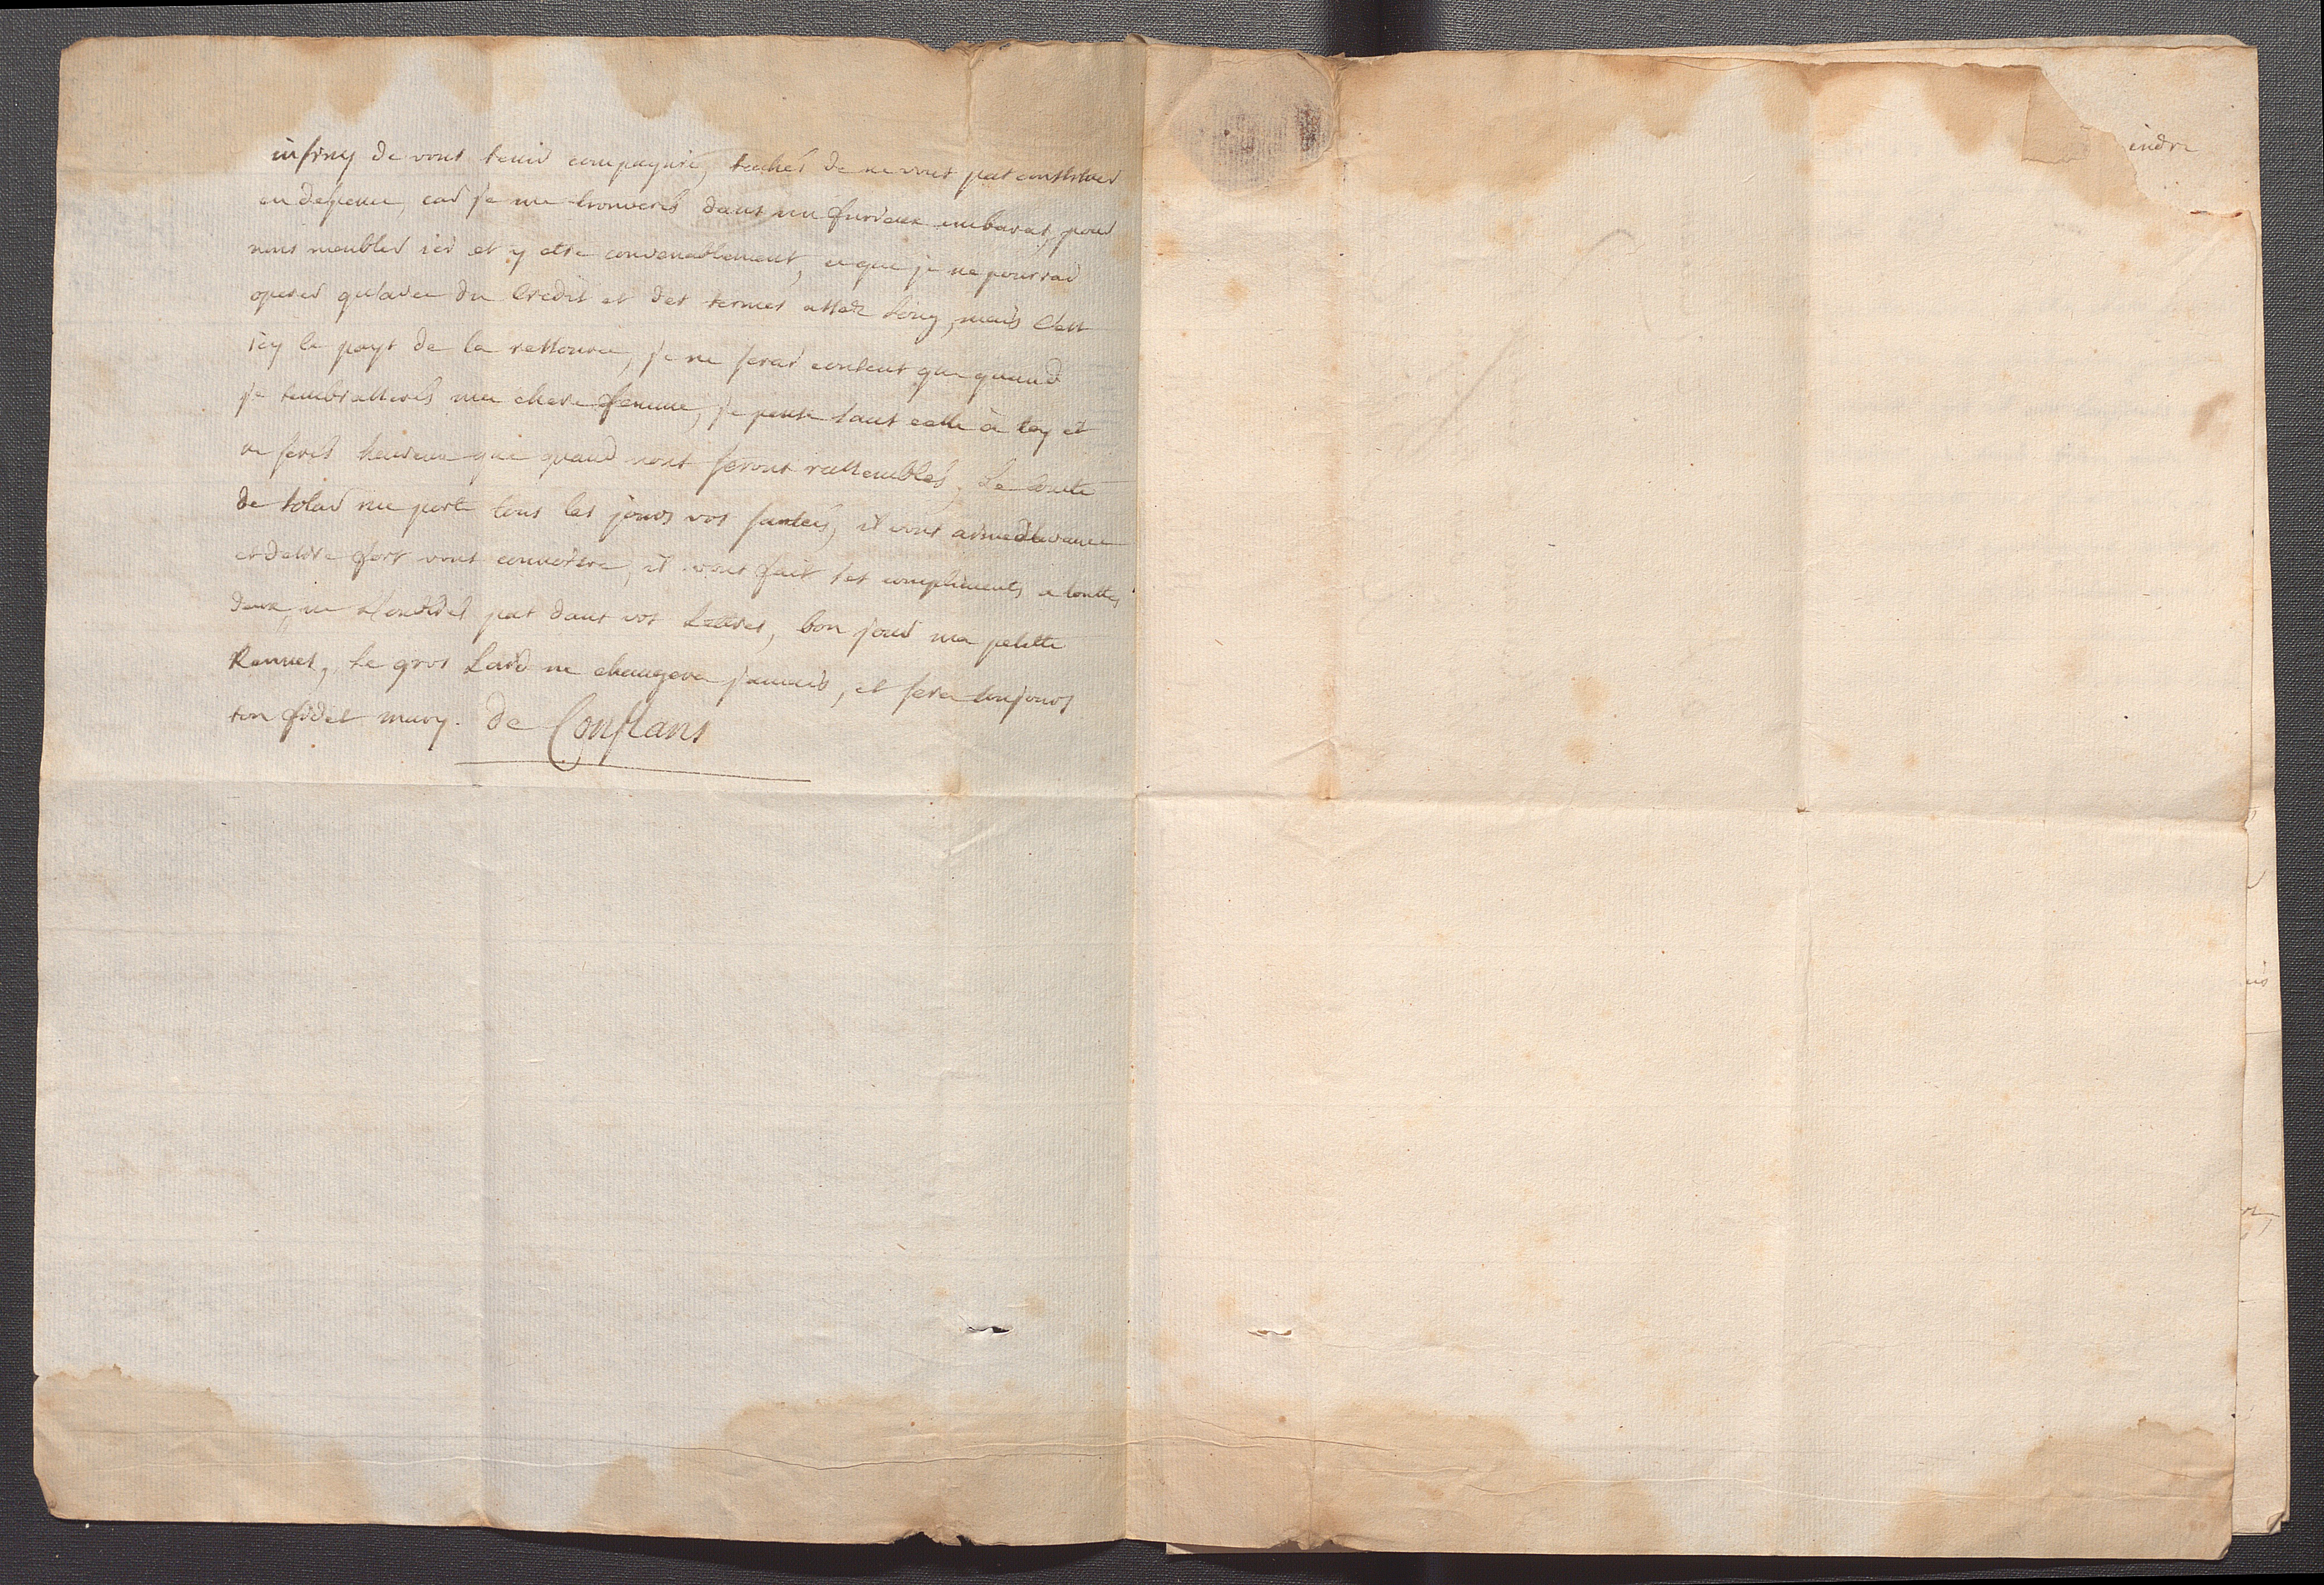 infiny de vous tenir compagnie, tachés de ne vous pas constituer
en depence, car je me trouverés dans un furieux embaras, pour
nous meubler ici et y etre convenablement, ce que je ne pourrai
operer qu'avec du Credit et des termes assez long, mais C'est
icy le pays de la ressource, je ne serai content que quand
je tembrasserés ma chere femme, je pense sans cesse à toy et
ne serés heureux que quand nous serons rassemblés, Le Comte
de me porte tous les jours vos santés, il vous aime davance
et desire fort vous connoitre, il vous fait ses compliments a touttes
deux, ne pas dans vos Lettres, bon jour ma petitte
Le gros Lard ne changera jamais, et sera toujours
ton fidel mary. De Conflans
indre